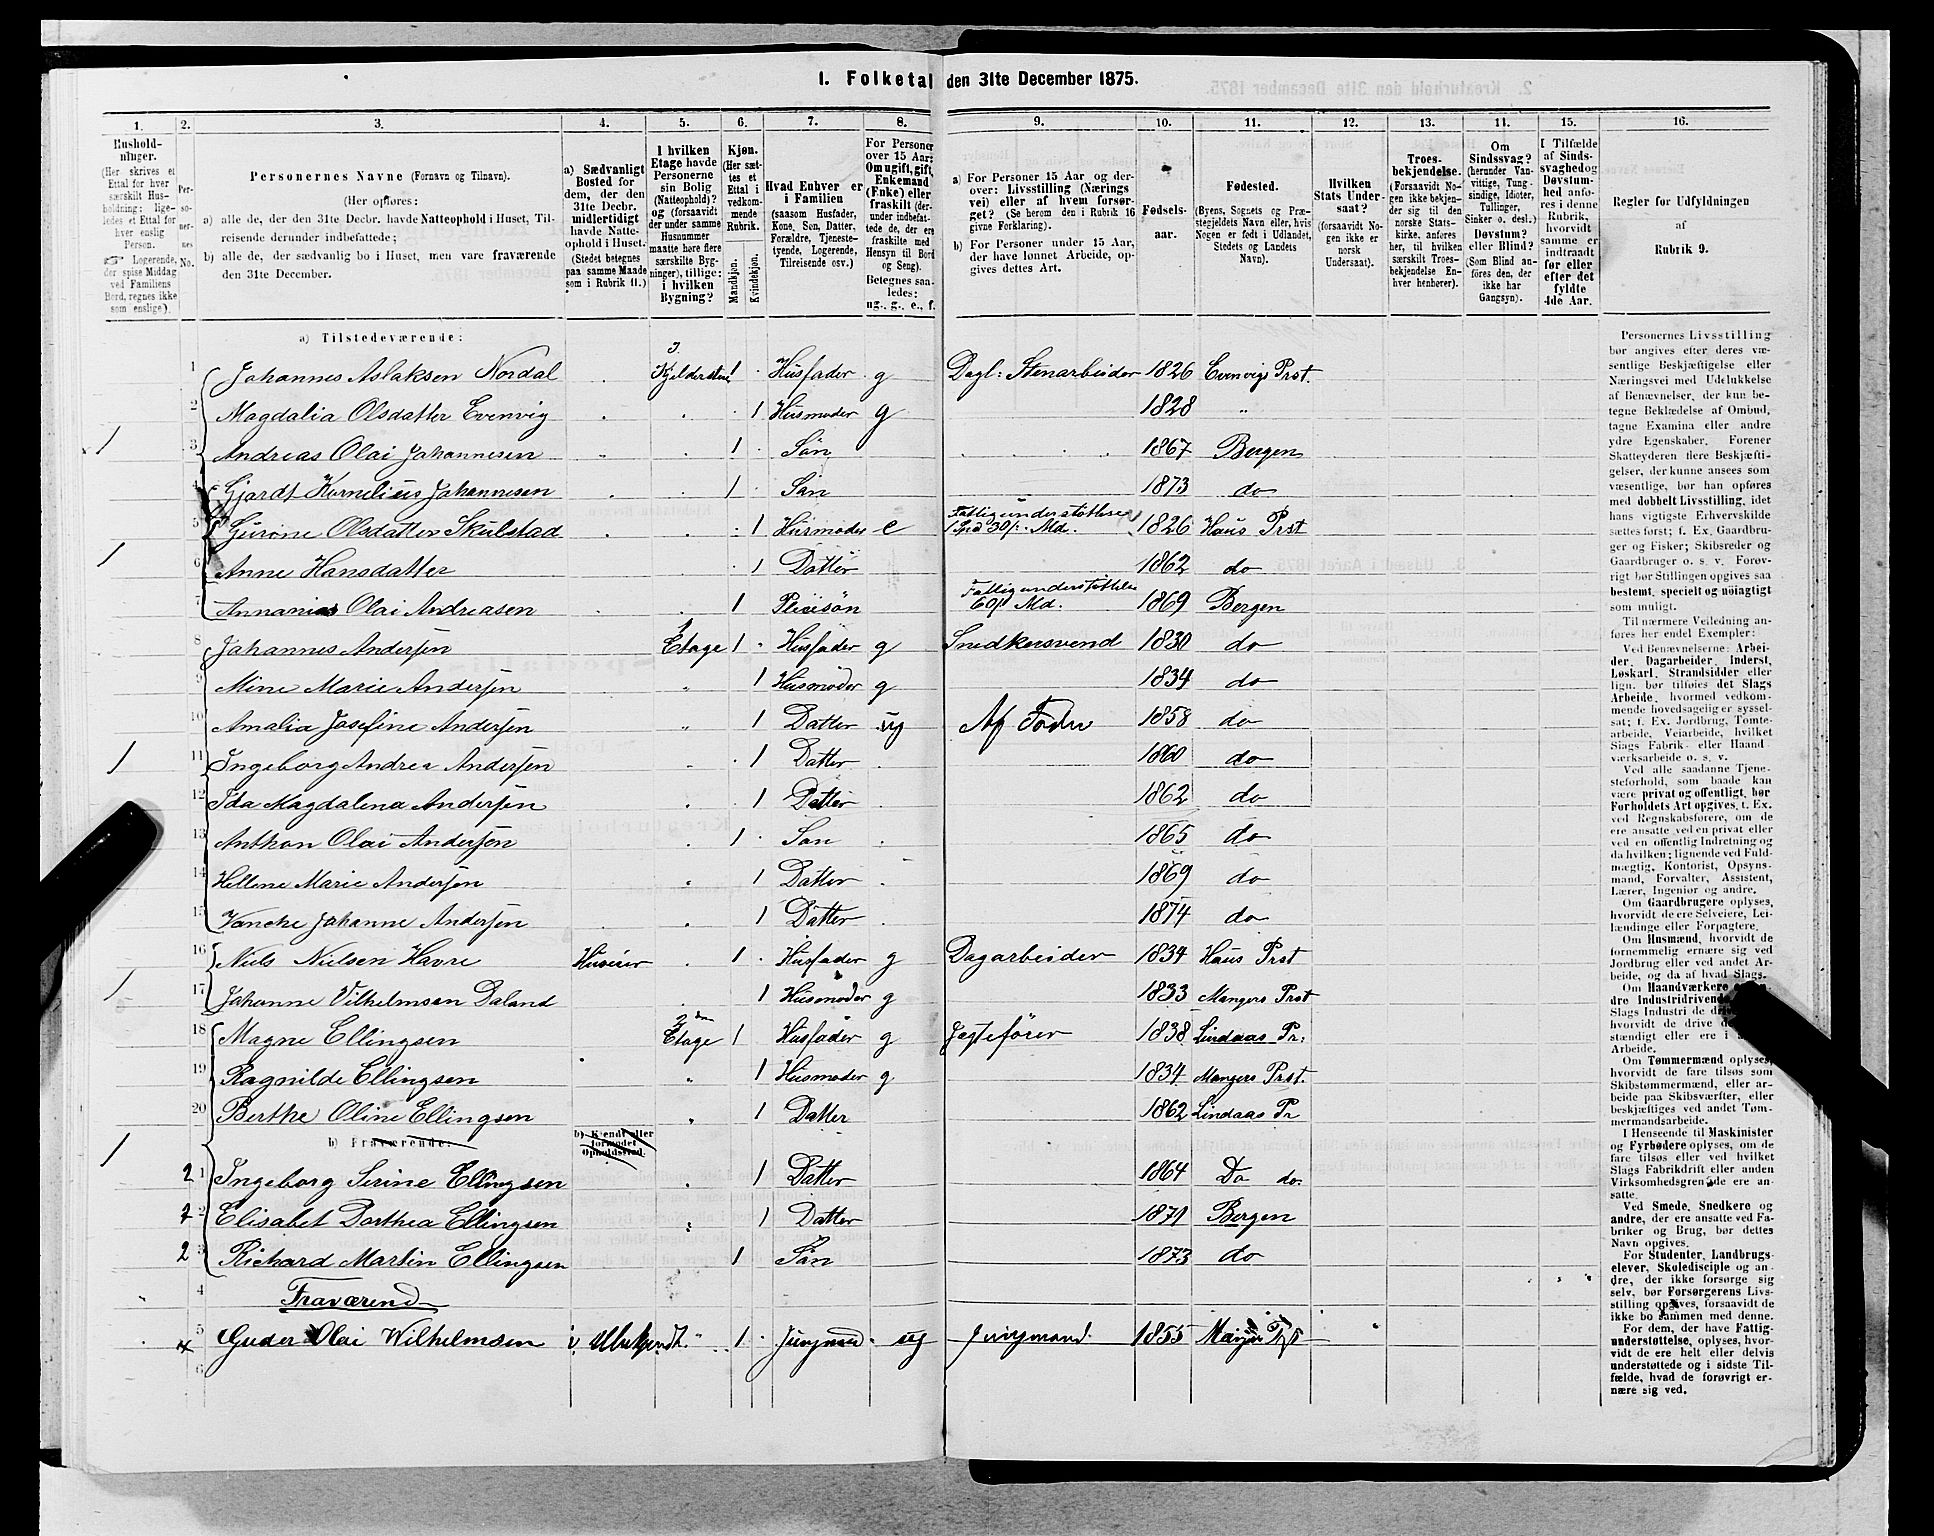 1. Folketal den 31te December 1875.
1. 2. 3. 4. 5. 6. 7. 8. 9. 10. 11. 12. 13. 11. 15. 16.
Hushold-
ninger.
(Her skrives et
Ettal for hver
særskilt Hus-
holdning; lige-
ledes et Ettal for
hver enslig
Person.
☞ Logerende,
der spise Middag
ved Familiens
Bord, regnes ikke
som enslige).
Per-
so-
ner-
nes
No.
Personernes Navne (Fornavn og Tilnavn).
(Her opføres:
a) alle de, der den 31te Decbr. havde Natteophold i Huset, Til-
reisende derunder indbefattede;
b) alle de, der sædvanlig bo i Huset, men vare fraværende
den 31te December.
a) Sædvanligt
Bosted for
dem, der den
31te Decbr.
midlertidigt
havde Natte-
ophold i Huset.
(Stedet betegnes
paa samme Maade
som i Rubrik 11.)
I hvilken
Etage havde
Personerne
sin Bolig
(Natteophold)?
og (forsaavidt
der under samme
Husnummer
maatte være flere
særskilte Byg-
ninger), tillige:
i hvilken
Bygning?
Kjøn.
(Her sæt-
tes et
Ettal i
vedkom-
mende
Rubrik.
Mandkjøn.
Kvindekjøn.
Hvad Enhver er
i Familien
(saasom Husfader,
Kone, Søn, Datter,
Forældre, Tjeneste-
tyende, Logerende,
Tilreisende osv.)
For Personer
over 15 Aar:
Om ugift, gift,
Enkemand
(Enke) eller
fraskilt (der-
under indbefat-
tede de, der ere
fraskilte med
Hensyn til Bord
og Seng).
Betegnes saa-
ledes:
ug., g., e., f.
a) For Personer 15 Aar og der-
over: Livsstilling (Nærings
vei) eller af hvem forsør-
get? (Se herom den i Rubrik 16
givne Forklaring).
b) For Personer under 15 Aar,
der have lønnet Arbeide, op-
gives dettes Art.
Fødsels-
aar.
Fødested.
(Byens, Sognets og Præ-
stegjeldets Navn eller, hvis
Nogen er født i Udlandet,
Stedets og Landets
Navn).
Hvilken
Stats Under-
saat?
(forsaavidt No-
gen ikke er
norsk
Undersaat).
Troes-
bekjendelse.
(Forsaavidt No-
gen ikke bekjen-
der sig til den
norske Stats-
kirke, anføres
her, til hvilken
særskilt Troes-
bekjendelse En-
hver henhører).
Om
Sindssvag?
(herunder Van-
vittige, Tung-
sindige, Idioter,
Tullinger,
Sinker o. desl.)
Døvstum?
eller Blind?
(Som Blind an-
føres den, der
ikke har
Gangsyn).
I Tilfælde
af Sinds-
svaghed og
Døvstum-
hed anfø-
res i denne
Rubrik,
hvorvidt
samme er
indtraadt
før eller
efter det
fyldte
4de Aar.
Regler for Udfyldningen
af
Rubrik 9.
a) Tilstedeværende:
1 Johannes Aslaksen Nordal Kjelderetage 1 Husfader g Dagl: Stenarbeider 1826 Evenvigs Prst.
2 Magdalia Olsdatter Evenvig 1 Husmoder g 1828 "
1 3 Andreas Olai Johannesen 1 Søn 1867 Bergen
4 Gjardt Kornelius Johannesen 1 Søn 1873 do
5 Gurine Olsdatter Skulstad 1 Husmoder e Fattigunderstøttelse 1826 Haus Prst
1 6 Anne Hansdatter 1 Datter 1862 do
7 Annanias Olai Andreasen 1 Pleiesøn Fattigunderstøttelse Md. 1869 Bergen
8 Johannes Andersen 1 Etage 1 Husfader g Snedkersvend 1830 do
9 Mine Marie Andersen " 1 Husmoder g 1834 do
10 Amalia Josefine Andersen " 1 Datter ug Af Fader 1858 do
1 11 Ingeborg Andrea Andersen 1 Datter 1860 do
12 Ida Magdalena Andersen 1 Datter 1862 do
13 Anthon Olai Andersen 1 Søn 1865 do
14 Hellene Marie Andersen " 1 Datter 1869 do
15 Vencke Johanne Andersen 1 Datter 1874 do
16 Niels Nielsen Havre Huseier 1 Husfader g Dagarbeider 1834 Haus Prst
1 17 Johanne Vilhelmsen Daland 1 Husmoder g 1833 Mangers Prst
18 Magne Ellingsen 2den Etage 1 Husfader g Jægtefører 1838 Lindaas Pr:
19 Ragnilde Ellingsen " 1 Husmoder g 1834 Mangers Prst.
20 Berthe Oline Ellingsen " 1 Datter 1862 Lindaas Pr
1 b) Fraværende: b) Kjendt eller
formodet
Opholdssted.
21 Ingeborg Serine Ellingsen 1 Datter 1864 Do do.
2 Elisabet Dorthea Ellingsen " 1 Datter 1871 Bergen
23 Richard Martin Ellingsen 1 Søn 1873 do
4 Fraværend
5 Guder Olai Wilhelmsen Ubekjendt 1 Jungmand ug Jungmand 1855 Mangers Prst
6
Personernes Livsstilling
bør angives efter deres væ-
sentlige Beskjæftigelse eller
Næringsvei med Udelukkelse
af Benævnelser, der kun be-
tegne Beklædelse af Ombud,
tagne Examina eller andre
ydre Egenskaber. Forener
Skatteyderen flere Beskjæfti-
gelser, der kunne ansees som
væsentlige, bør han opføres
med dobbelt Livsstilling, idet
hans vigtigste Erhvervskilde
sættes først; f. Ex. Gaardbru-
ger og Fisker; Skibsreder og
Gaardbruger o. s. v. Forøv-
rigt bør Stillingen opgives saa
bestemt, specielt og nøiagtigt
som muligt.
Til nærmere Veiledning an-
føres her endel Exempler:
Ved Benævnelserne: Arbei-
der, Dagarbeider, Inderst,
Løskarl, Strandsidder eller
lign. bør tilføies det Slags
Arbeide, hvormed vedkom-
mende hovedsagelig er syssel-
sat; f. Ex. Jordbrug, Tomte-
arbeide, Veiarbeide, hvilket
Slags Fabrik- eller Haand-
værksarbeide o. s. v.
Ved alle saadanne Tjene-
steforhold, som baade kan
være privat og offentligt, bør
Forholdets Art opgives, t. Ex.
ved Regnskabsførere, om de
ere ansatte ved en privat eller
ved en offentlig Indretning og
da hvilken; lignende ved Fuld-
mægtig, Kontorist, Opsyns-
mand, Forvalter, Assistent,
Lærer, Ingeniør og andre.
Om Gaardbrugere oplyses,
hvorvidt de ere Selveiere, Lei-
lændinge eller Forpagtere.
Om Husmænd, hvorvidt de
fornemmelig ernære sig ved
Jordbrug eller ved andet Ar-
beide, og da af hvad Slags.
Om Haandværkere
dre Industridrivende
Slags Industri de
hvorvidt de drive
stændigt eller ere i
Arbeide.
Om Tømmermænd oplyses,
hvorvidt de fare tilsøs som
Skibstømmermænd, eller ar-
beide paa Skibsværfter, eller
beskjæftiges ved andet Tøm-
mermandsarbeide.
I Henseende til Maskinister
og Fyrbødere oplyses, om de
fare tilsøs eller ved hvilket
Slags Fabrikdrift eller anden
Virksomhedsgren de ere an-
satte.
Ved Smede, Snedkere og
andre, der ere ansatte ved Fa-
briker og Brug, bør dettes
Navn opgives.
For Studenter, Landbrugs-
elever, Skoledisciple og an-
dre, der ikke forsørge sig
selv, bør Forsørgerens Livs-
stilling opgives, forsaavidt de
ikke bo sammen med denne.
For dem, der have Fattig-
understøttelse, oplyses, hvor-
vidt de ere helt eller delvis
understøttede og i sidste Til-
fælde, hvad de forøvrigt er-
nære sig ved.